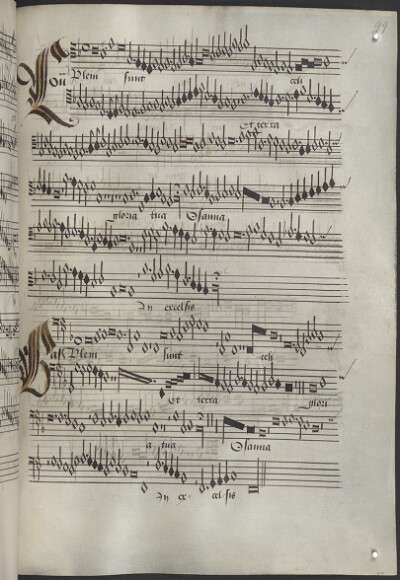 Plem sunt celi
Et terra
gloria tua Osanna
In excelsis
Plem sunt celi
Et terra glori
a tua Osanna
In ex cel sis